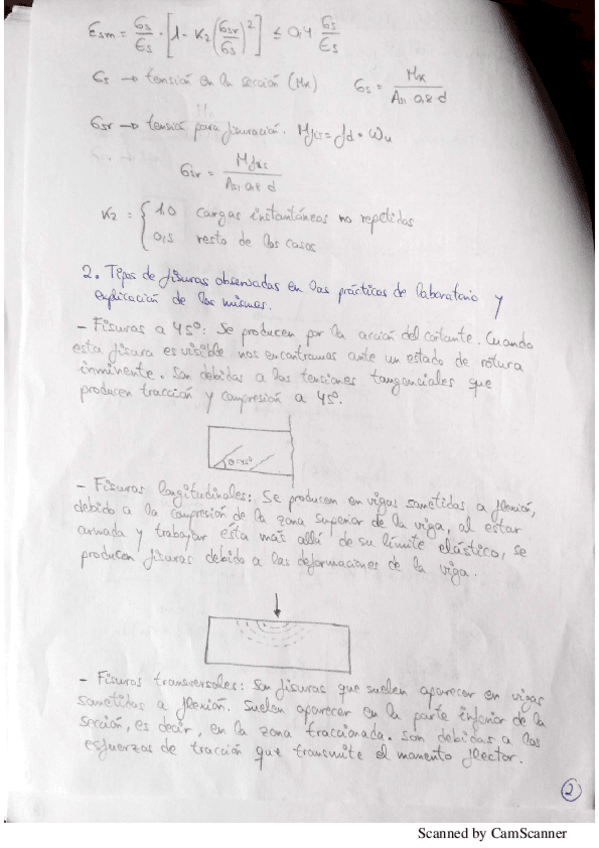 Esm = σs/Es · [1 - K2 (σsr/σs)²] ≤ 0,4 σs/Es
σs → tensión en la sección (Mk) σs = Mk / As1 0,8 d
σsr → tensión para fisuración. Mfis = fd · Wu
σsr = Mfis / As1 0,8 d
K2 = { 1,0 cargas instantáneas no repetidas
0,5 resto de los casos
2. Tipos de fisuras observadas en las prácticas de laboratorio y
explicación de las mismas.
- Fisuras a 45º: Se producen por la acción del cortante. Cuando
esta fisura es visible nos encontramos ante un estado de rotura
inminente. Son debidas a las tensiones tangenciales que
producen tracción y compresión a 45º.
θ=45º
- Fisuras longitudinales: Se producen en vigas sometidas a flexión,
debido a la compresión de la zona superior de la viga, al estar
armada y trabajar ésta más allá de su límite elástico, se
producen fisuras debido a las deformaciones de la viga.
- Fisuras transversales: Son fisuras que suelen aparecer en vigas
sometidas a flexión. Suelen aparecer en la parte inferior de la
sección, es decir, en la zona traccionada. Son debidas a los
esfuerzos de tracción que transmite el momento flector.
2
Scanned by CamScanner